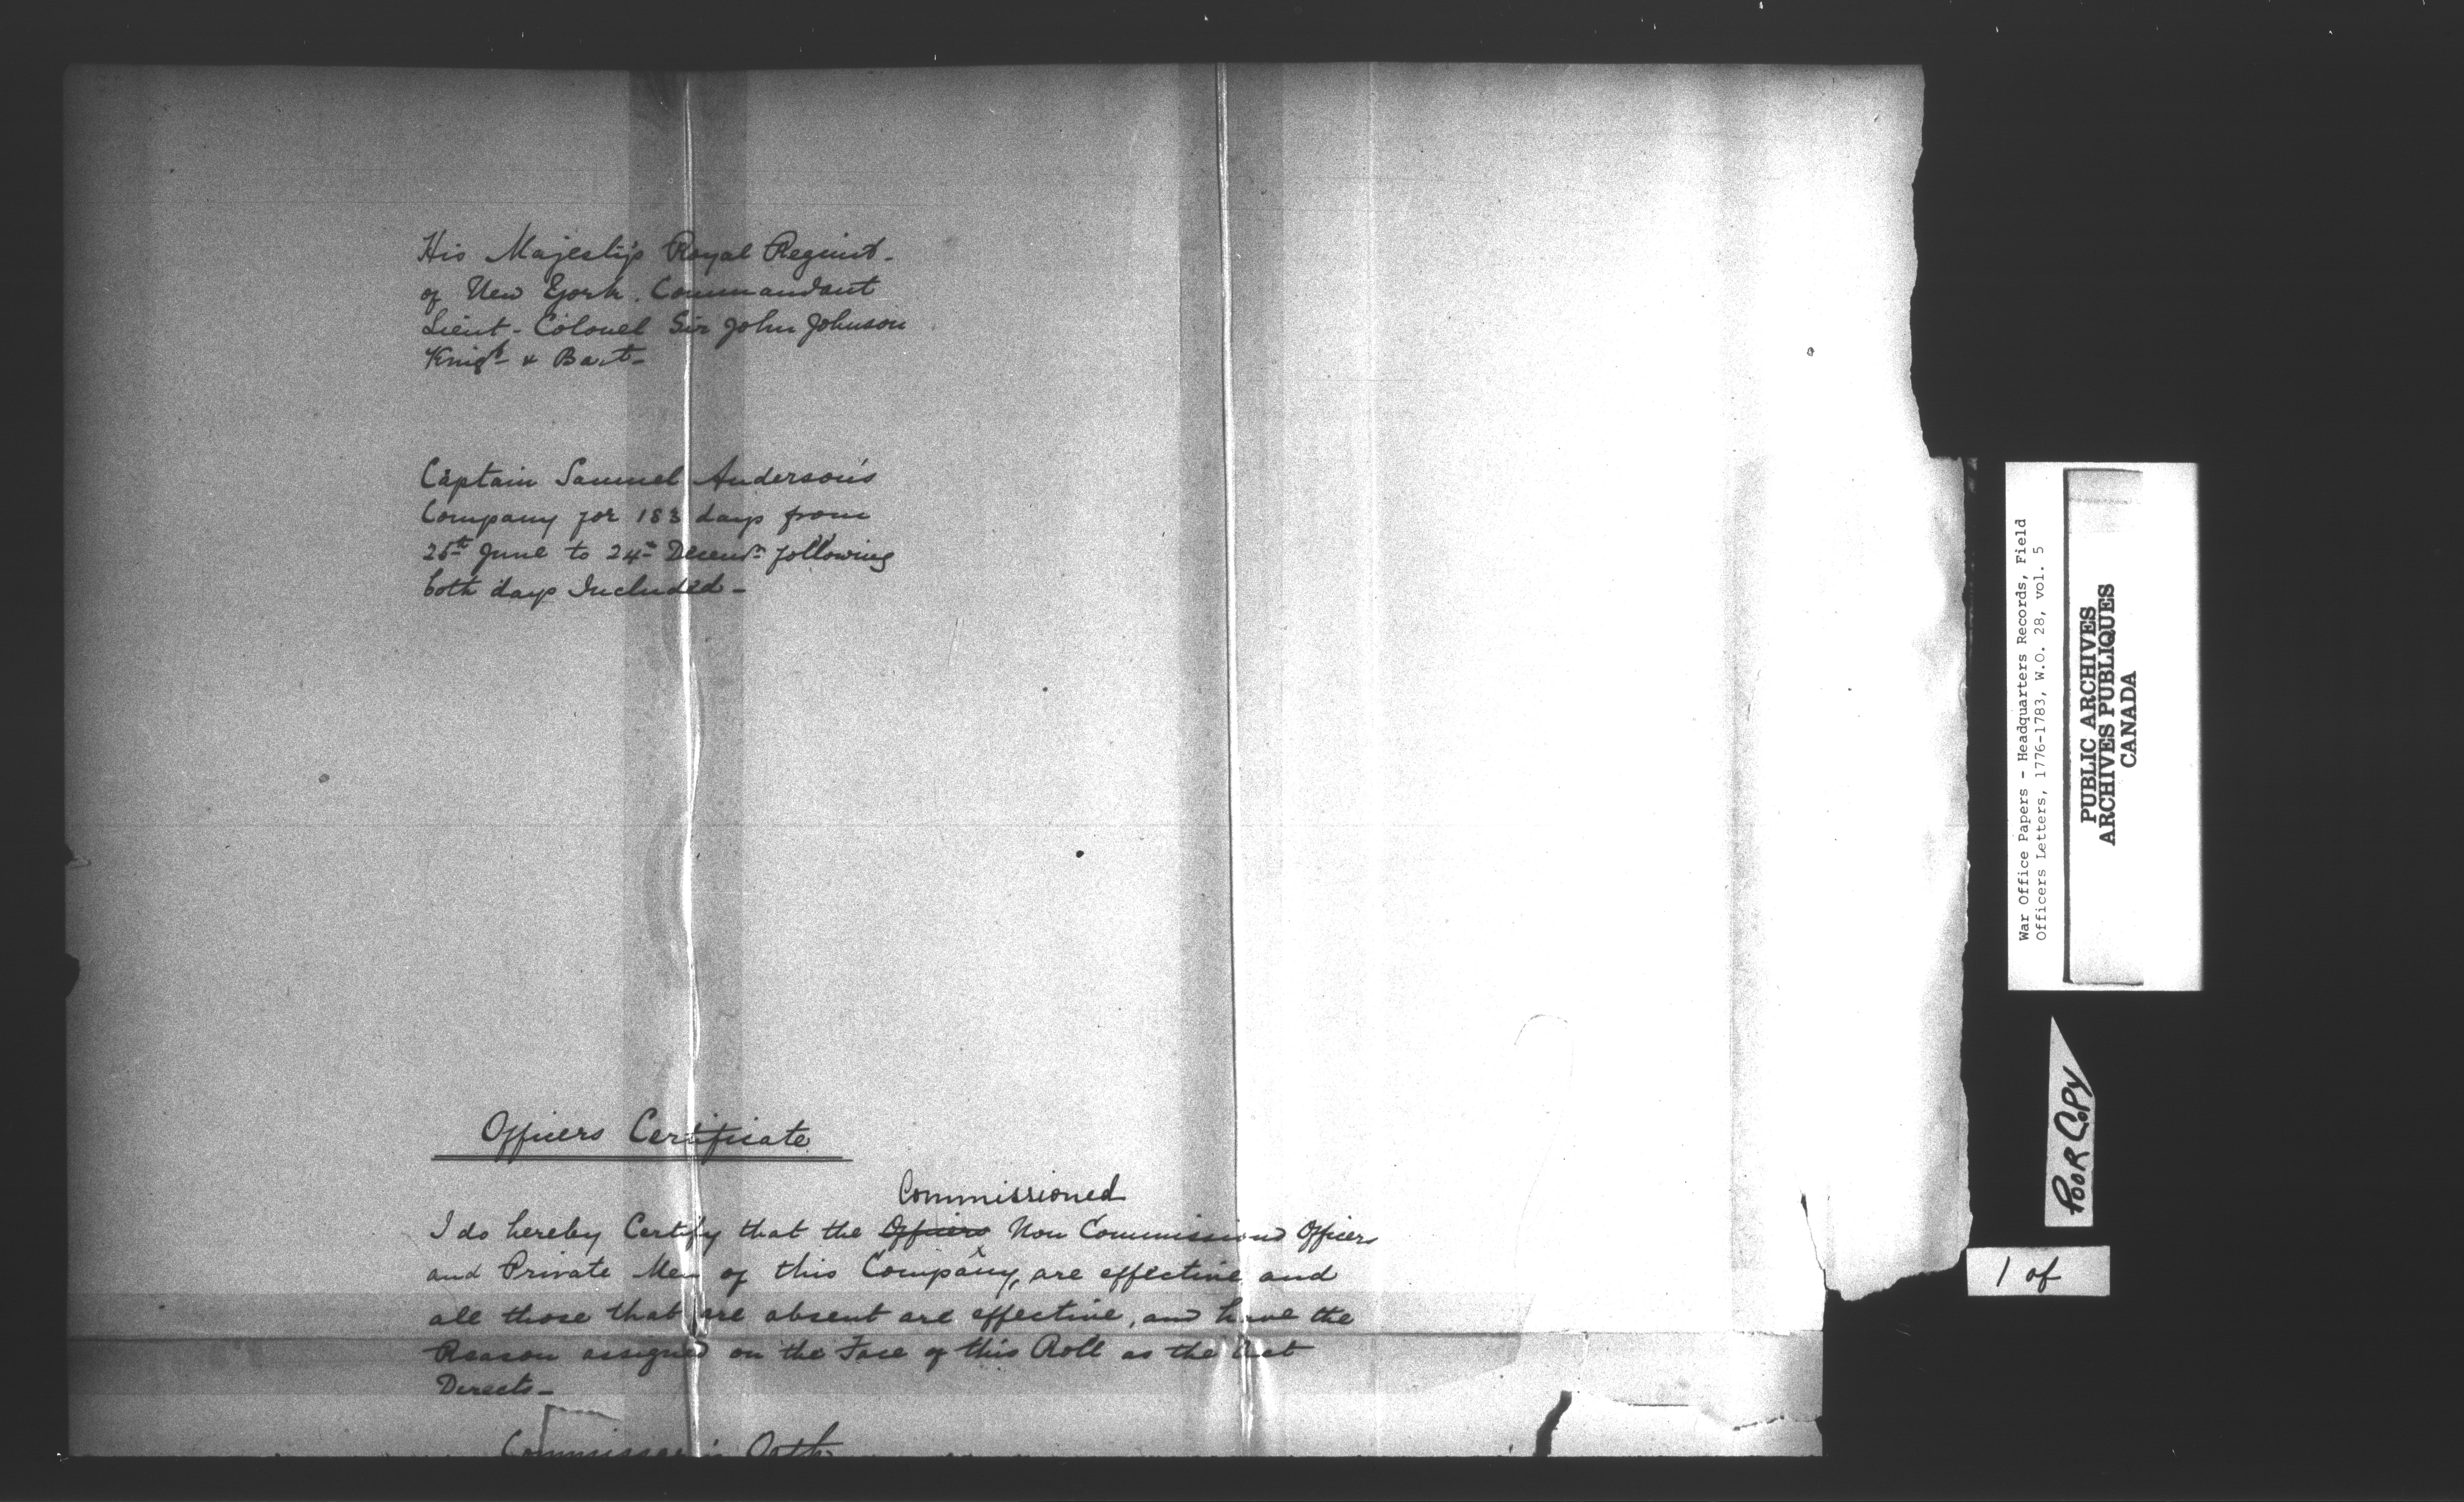 His Majesty's Royal Regimt.
of New York. Commandant
Lieut- Colonel Sir John Johnson
Knigt & Bart-
Captain Samuel Anderson's
Company for 183 days from
25th June to 24th Decemr. following
both days Included-
Officers Certificate
Commissioned
I do hereby Certify that the Officers Non Commissiond Officers
and Private Men of this Company, are effective and
all those that are absent are effective, and have the
Reason assigned on the Face of this Roll as the Act
Directs-
Commissar's Oath
War Office Papers - Headquarters Records, Field
Officers Letters, 1776-1783, W.O. 28, vol. 5
PUBLIC ARCHIVES
ARCHIVES PUBLIQUES
CANADA
POOR COPY
1 of